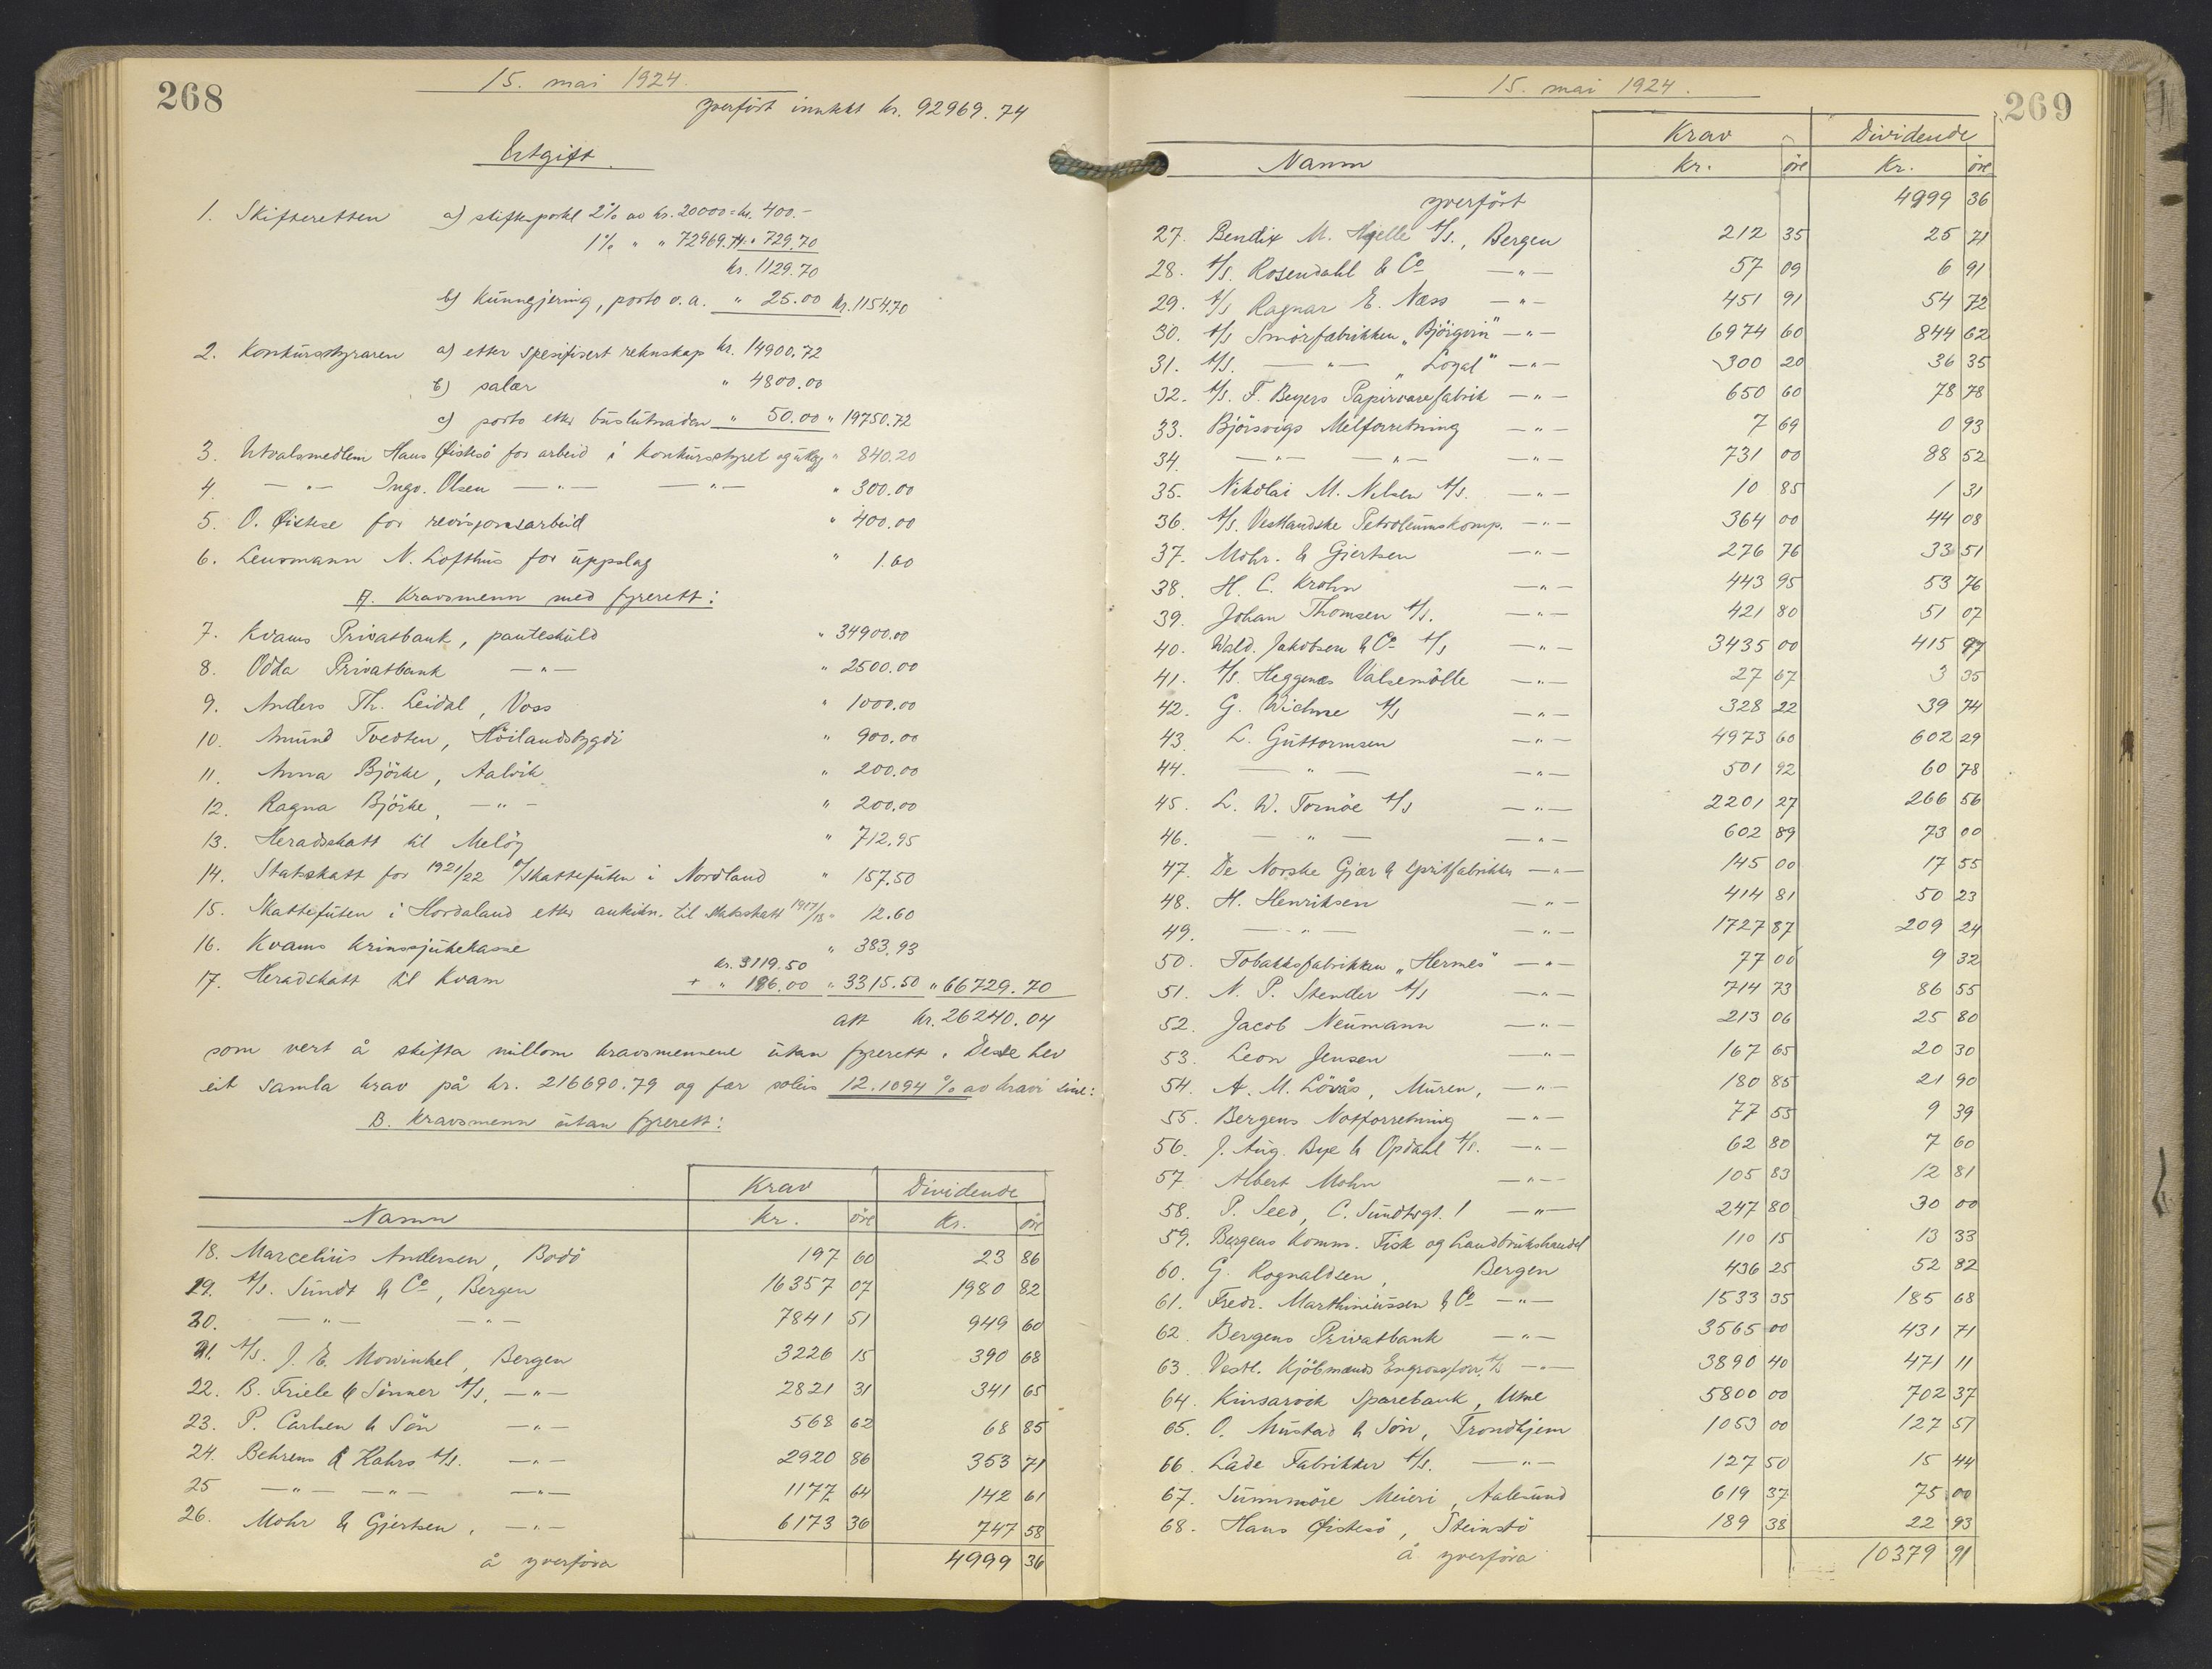 268
15. mai 1924.
yverført inntekt kr. 92969.74
Utgift.
1. Skifteretten a) skifteportel 2% av kr. 20000 = kr. 400.-
1% " " 72969.74 = " 729.70
kr. 1129.70
b) Kunngjering, porto o.a. " 25.00 kr. 1154.70
2. Konkursstyraren a) etter spesifisert rekneskap kr. 14900.72
b) salær " 4800.00
c) porto etter buslutnaden " 50.00 " 19750.72
3. Utvalsmedlem Hans Øistesö for arbeid i konkursstyret og utlegg " 840.20
4. — " — Ingv. Olsen — " — — " — " 300.00
5. O. Øistese for revisjonsarbeid " 400.00
6. Lensmann N. Lofthus for uppslag " 1.60
A. Kravsmenn med fyrerett:
7. Kvams Privatbank, panteskuld " 34900.00
8. Odda Privatbank — " — " 2500.00
9. Anders Th. Leidal, Voss " 1000.00
10. Amund Tvedten, Höilandsbygdi " 900.00
11. Anna Björke, Aalvik " 200.00
12. Ragna Björke, — " — " 200.00
13. Heradsskatt til Melöy " 712.95
14. Statsskatt for 1921/22 t/Skattefuten i Nordland " 157.50
15. Skattefuten i Hordaland etter auksjon. til statsskatt 1917/18 " 12.60
16. Kvams krinssjukekasse " 383.93
kr. 3119.50
17. Heradskatt til Kvam + " 196.00 " 3315.50 " 66729.70
att kr. 26240.04
som vert å skifta millom kravsmennene utan fyrerett. Desse hev
eit samla krav på kr. 216690.79 og fær soleis 12.1094 % av kravi sine:
B. Kravsmenn utan fyrerett:
Krav Dividende
Namn Kr. öre Kr. öre
18. Marcelius Andersen, Bodö 197 60 23 86
19. A/S. Sundt & Co, Bergen 16357 07 1980 82
20. — " — — " — 7841 51 949 60
21. A/S. J. E. Mowinkel, Bergen 3226 15 390 68
22. B. Friele & Sönner A/S, — " — 2821 31 341 65
23. P. Carlsen & Sön — " — 568 62 68 85
24. Behrens & Kahrs A/S. — " — 2920 86 353 71
25 — " — — " — — " — 1177 64 142 61
26. Mohr & Gjertsen, — " — 6173 36 747 58
å yverföra 4999 36
15. mai 1924.
269
Krav Dividende
Namn Kr. öre Kr. öre
yverfört 4999 36
27. Bendix M. Hjelle A/S., Bergen 212 35 25 71
28. A/S. Rosendahl & Co — " — 57 09 6 91
29. A/S Ragnar E. Næss — " — 451 91 54 72
30. A/S Smörfabrikken „Björgvin" — " — 6974 60 844 62
31. A/S. — " — „Loyal" — " — 300 20 36 35
32. A/S. F. Beyers Papirvarefabrik — " — 650 60 78 78
33. Björsvigs Melforretning — " — 7 69 0 93
34. — " — — " — — " — 731 00 88 52
35. Nikolai M. Nilsen A/S. — " — 10 85 1 31
36. A/S. Vestlandske Petroleumskomp. — " — 364 00 44 08
37. Mohr & Gjertsen — " — 276 76 33 51
38. H. C. Krohn — " — 443 95 53 76
39. Johan Thomsen A/S. — " — 421 80 51 07
40. Wald. Jakobsen & Co A/S — " — 3435 00 415 97
41. A/S. Heggenes Valsemölle — " — 27 67 3 35
42. G. Wichne A/S — " — 328 22 39 74
43. L. Guttormsen — " — 4973 60 602 29
44. — " — — " — 501 92 60 78
45. L. W. Tornöe A/S — " — 2201 27 266 56
46. — " — — " — 602 89 73 00
47. De Norske Gjær & Spritfabrikker — " — 145 00 17 55
48. H. Henriksen — " — 414 81 50 23
49. — " — — " — 1727 87 209 24
50. Tobakksfabrikken „Hermes" — " — 77 00 9 32
51. N. P. Stender A/S — " — 714 73 86 55
52. Jacob Neumann — " — 213 06 25 80
53. Leon Jensen — " — 167 65 20 30
54. A. M. Lövås, Muren, — " — 180 85 21 90
55. Bergens Notforretning — " — 77 55 9 39
56. J. Aug. Bye & Opdahl A/S. — " — 62 80 7 60
57. Albert Mohn — " — 105 83 12 81
58. P. Seed, C. Sundtsgt. 1 — " — 247 80 30 00
59. Bergens Komm. Fisk og Landbrukshandel 110 15 13 33
60. G. Rognaldsen, Bergen 436 25 52 82
61. Fredr. Marthiniussen & Co — " — 1533 35 185 68
62. Bergens Privatbank — " — 3565 00 431 71
63. Vestl. Kjöbmænds Engrosforr. A/S — " — 3890 40 471 11
64. Kinsarvik Sparebank, Utne 5800 00 702 37
65. O. Mustad & Sön, Trondhjem 1053 00 127 51
66. Lade Fabrikker A/S. — " — 127 50 15 44
67. Sunnmöre Meieri, Aalesund 619 37 75 00
68. Hans Øistesö, Steinstö 189 38 22 93
å yverföra 10379 91